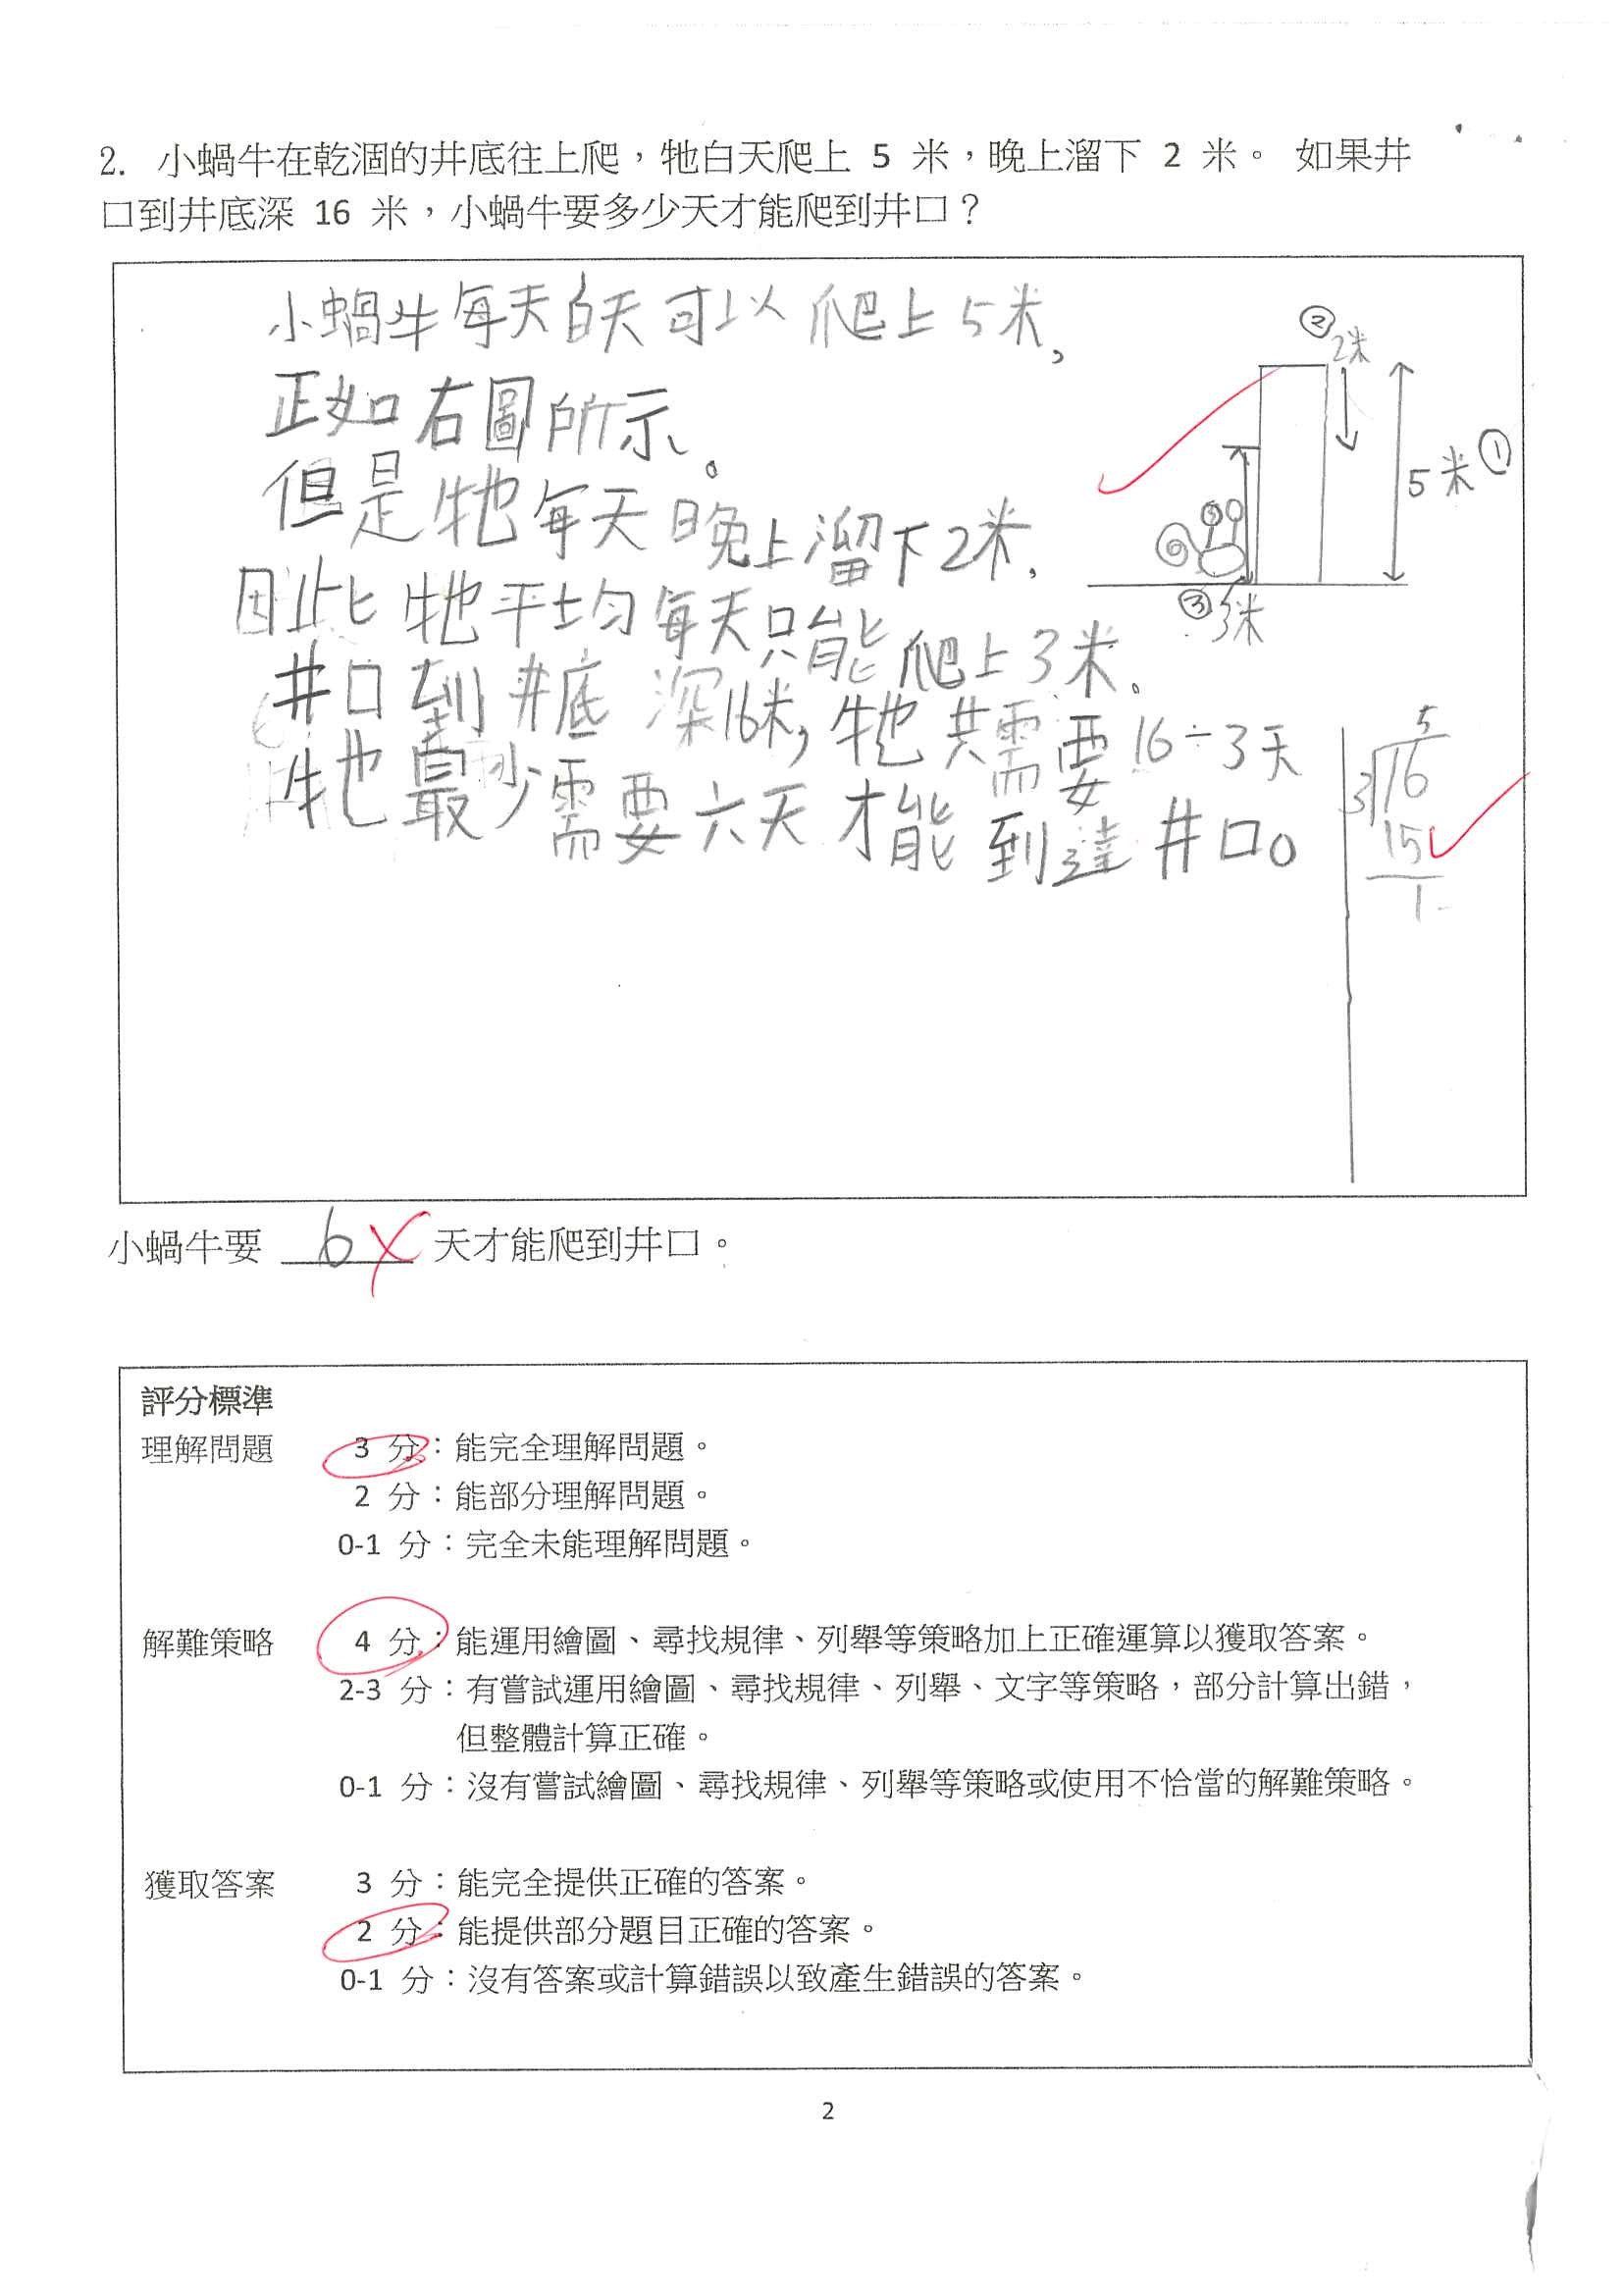 2. 小蝸牛在乾涸的井底往上爬，牠白天爬上 5 米，晚上溜下 2 米。 如果井
口到井底深 16 米，小蝸牛要多少天才能爬到井口？
小蝸牛每天白天可以爬上5米，
正如右圖所示。
但是牠每天晚上溜下2米，
因此牠平均每天只能爬上3米。
井口到井底深16米，牠共需要16÷3天
牠最少需要六天才能到達井口。
②
2米
5米 ①
③ 3米
5
3 16
15
1
小蝸牛要 6 天才能爬到井口。
評分標準
理解問題 3 分：能完全理解問題。
2 分：能部分理解問題。
0-1 分：完全未能理解問題。
解難策略 4 分：能運用繪圖、尋找規律、列舉等策略加上正確運算以獲取答案。
2-3 分：有嘗試運用繪圖、尋找規律、列舉、文字等策略，部分計算出錯，
但整體計算正確。
0-1 分：沒有嘗試繪圖、尋找規律、列舉等策略或使用不恰當的解難策略。
獲取答案 3 分：能完全提供正確的答案。
2 分：能提供部分題目正確的答案。
0-1 分：沒有答案或計算錯誤以致產生錯誤的答案。
2